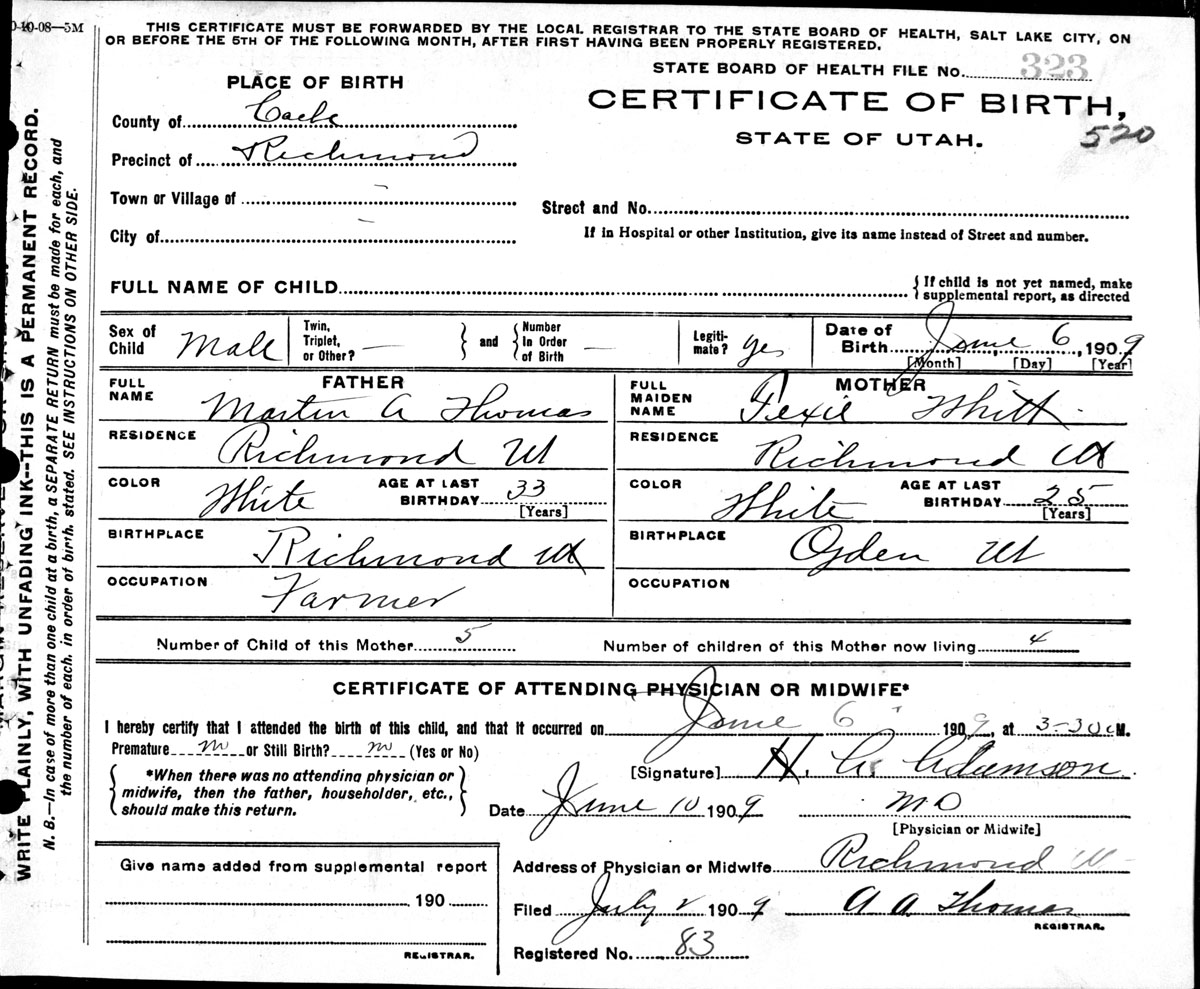 0-10-08—5M
THIS CERTIFICATE MUST BE FORWARDED BY THE LOCAL REGISTRAR TO THE STATE BOARD OF HEALTH, SALT LAKE CITY, ON
OR BEFORE THE 5TH OF THE FOLLOWING MONTH, AFTER FIRST HAVING BEEN PROPERLY REGISTERED.
STATE BOARD OF HEALTH FILE No. 323
PLACE OF BIRTH
CERTIFICATE OF BIRTH,
STATE OF UTAH.
520
County of Cache
Precinct of Richmond
Town or Village of -
Street and No.
City of -
If in Hospital or other Institution, give its name instead of Street and number.
FULL NAME OF CHILD
{ If child is not yet named, make
supplemental report, as directed
Sex of Child Male
Twin, Triplet, or Other? —
} and { Number In Order of Birth —
Legiti-mate? yes
Date of Birth June 6, 1909
[Month] [Day] [Year]
FATHER
MOTHER
FULL NAME Martin A Thomas
FULL MAIDEN NAME Texie Whitt
RESIDENCE Richmond Ut
RESIDENCE Richmond Ut
COLOR White
AGE AT LAST BIRTHDAY 33
[Years]
COLOR White
AGE AT LAST BIRTHDAY 25
[Years]
BIRTHPLACE Richmond Ut
BIRTHPLACE Ogden Ut
OCCUPATION Farmer
OCCUPATION
Number of Child of this Mother 5
Number of children of this Mother now living 4
CERTIFICATE OF ATTENDING PHYSICIAN OR MIDWIFE*
I hereby certify that I attended the birth of this child, and that it occurred on June 6 1909, at 3-30 a M.
Premature no or Still Birth? no (Yes or No)
{ *When there was no attending physician or
midwife, then the father, householder, etc.,
should make this return. }
[Signature] H. C. Adamson
Date June 10 1909
M D
[Physician or Midwife]
Give name added from supplemental report
190
REGISTRAR.
Address of Physician or Midwife Richmond Ut
Filed July 2 1909
A A. Thomas
REGISTRAR.
Registered No. 83
WRITE PLAINLY, WITH UNFADING INK--THIS IS A PERMANENT RECORD.
N. B.—In case of more than one child at a birth, a SEPARATE RETURN must be made for each, and
the number of each, in order of birth, stated. SEE INSTRUCTIONS ON OTHER SIDE.